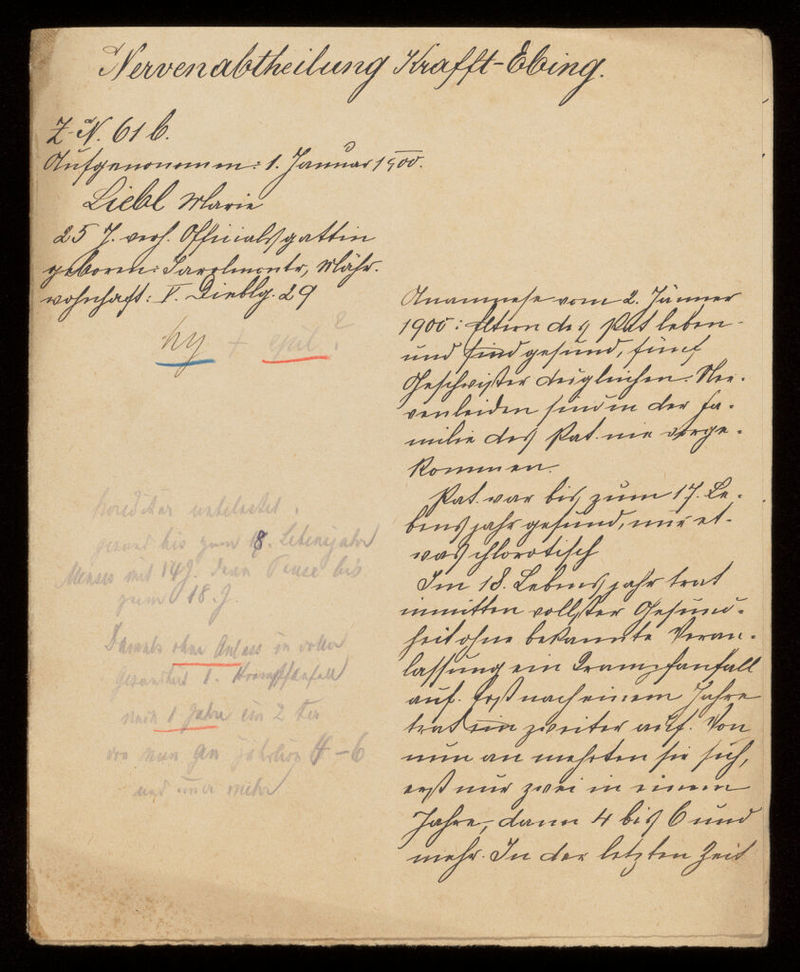 Nervenabtheilung Krafft-Ebing.
Z-N. 61 b.
Aufgenommen: 1. Januar 1900.
Liebl Marie
25 J. verh. Officialsgattin
geboren: Mähr.
wohnhaft: V. 29
hy + epil ?
hereditär unbelastet.
gesund bis zum 18. Lebensjahr
Menses mit 14 J. dann Pause bis
zum 18. J.
Damals ohne Anlass in voller
Gesundheit 1. Krampfanfall
nach 1 Jahre ein 2 ter
von nun an jährlich 4-6
und immer mehr
Anamnese vom 2. Jänner
1900: Eltern des Pat leben
und sind gesund, fünf
Geschwister desgleichen. Ner-
venleiden sind in der Fa-
milie des Pat. nie vorge-
kommen.
Pat. war bis zum 17. Le-
bensjahr gesund, nur et-
was chlorotisch
Im 18. Lebensjahr trat
inmitten vollster Gesund-
heit ohne bekannte Veran-
lassung ein Krampfanfall
auf. Erst nach einem Jahre
trat ein zweiter auf. Von
nun an mehrten sie sich,
erst nur zwei in einem
Jahre, dann 4 bis 6 und
mehr. In der letzten Zeit